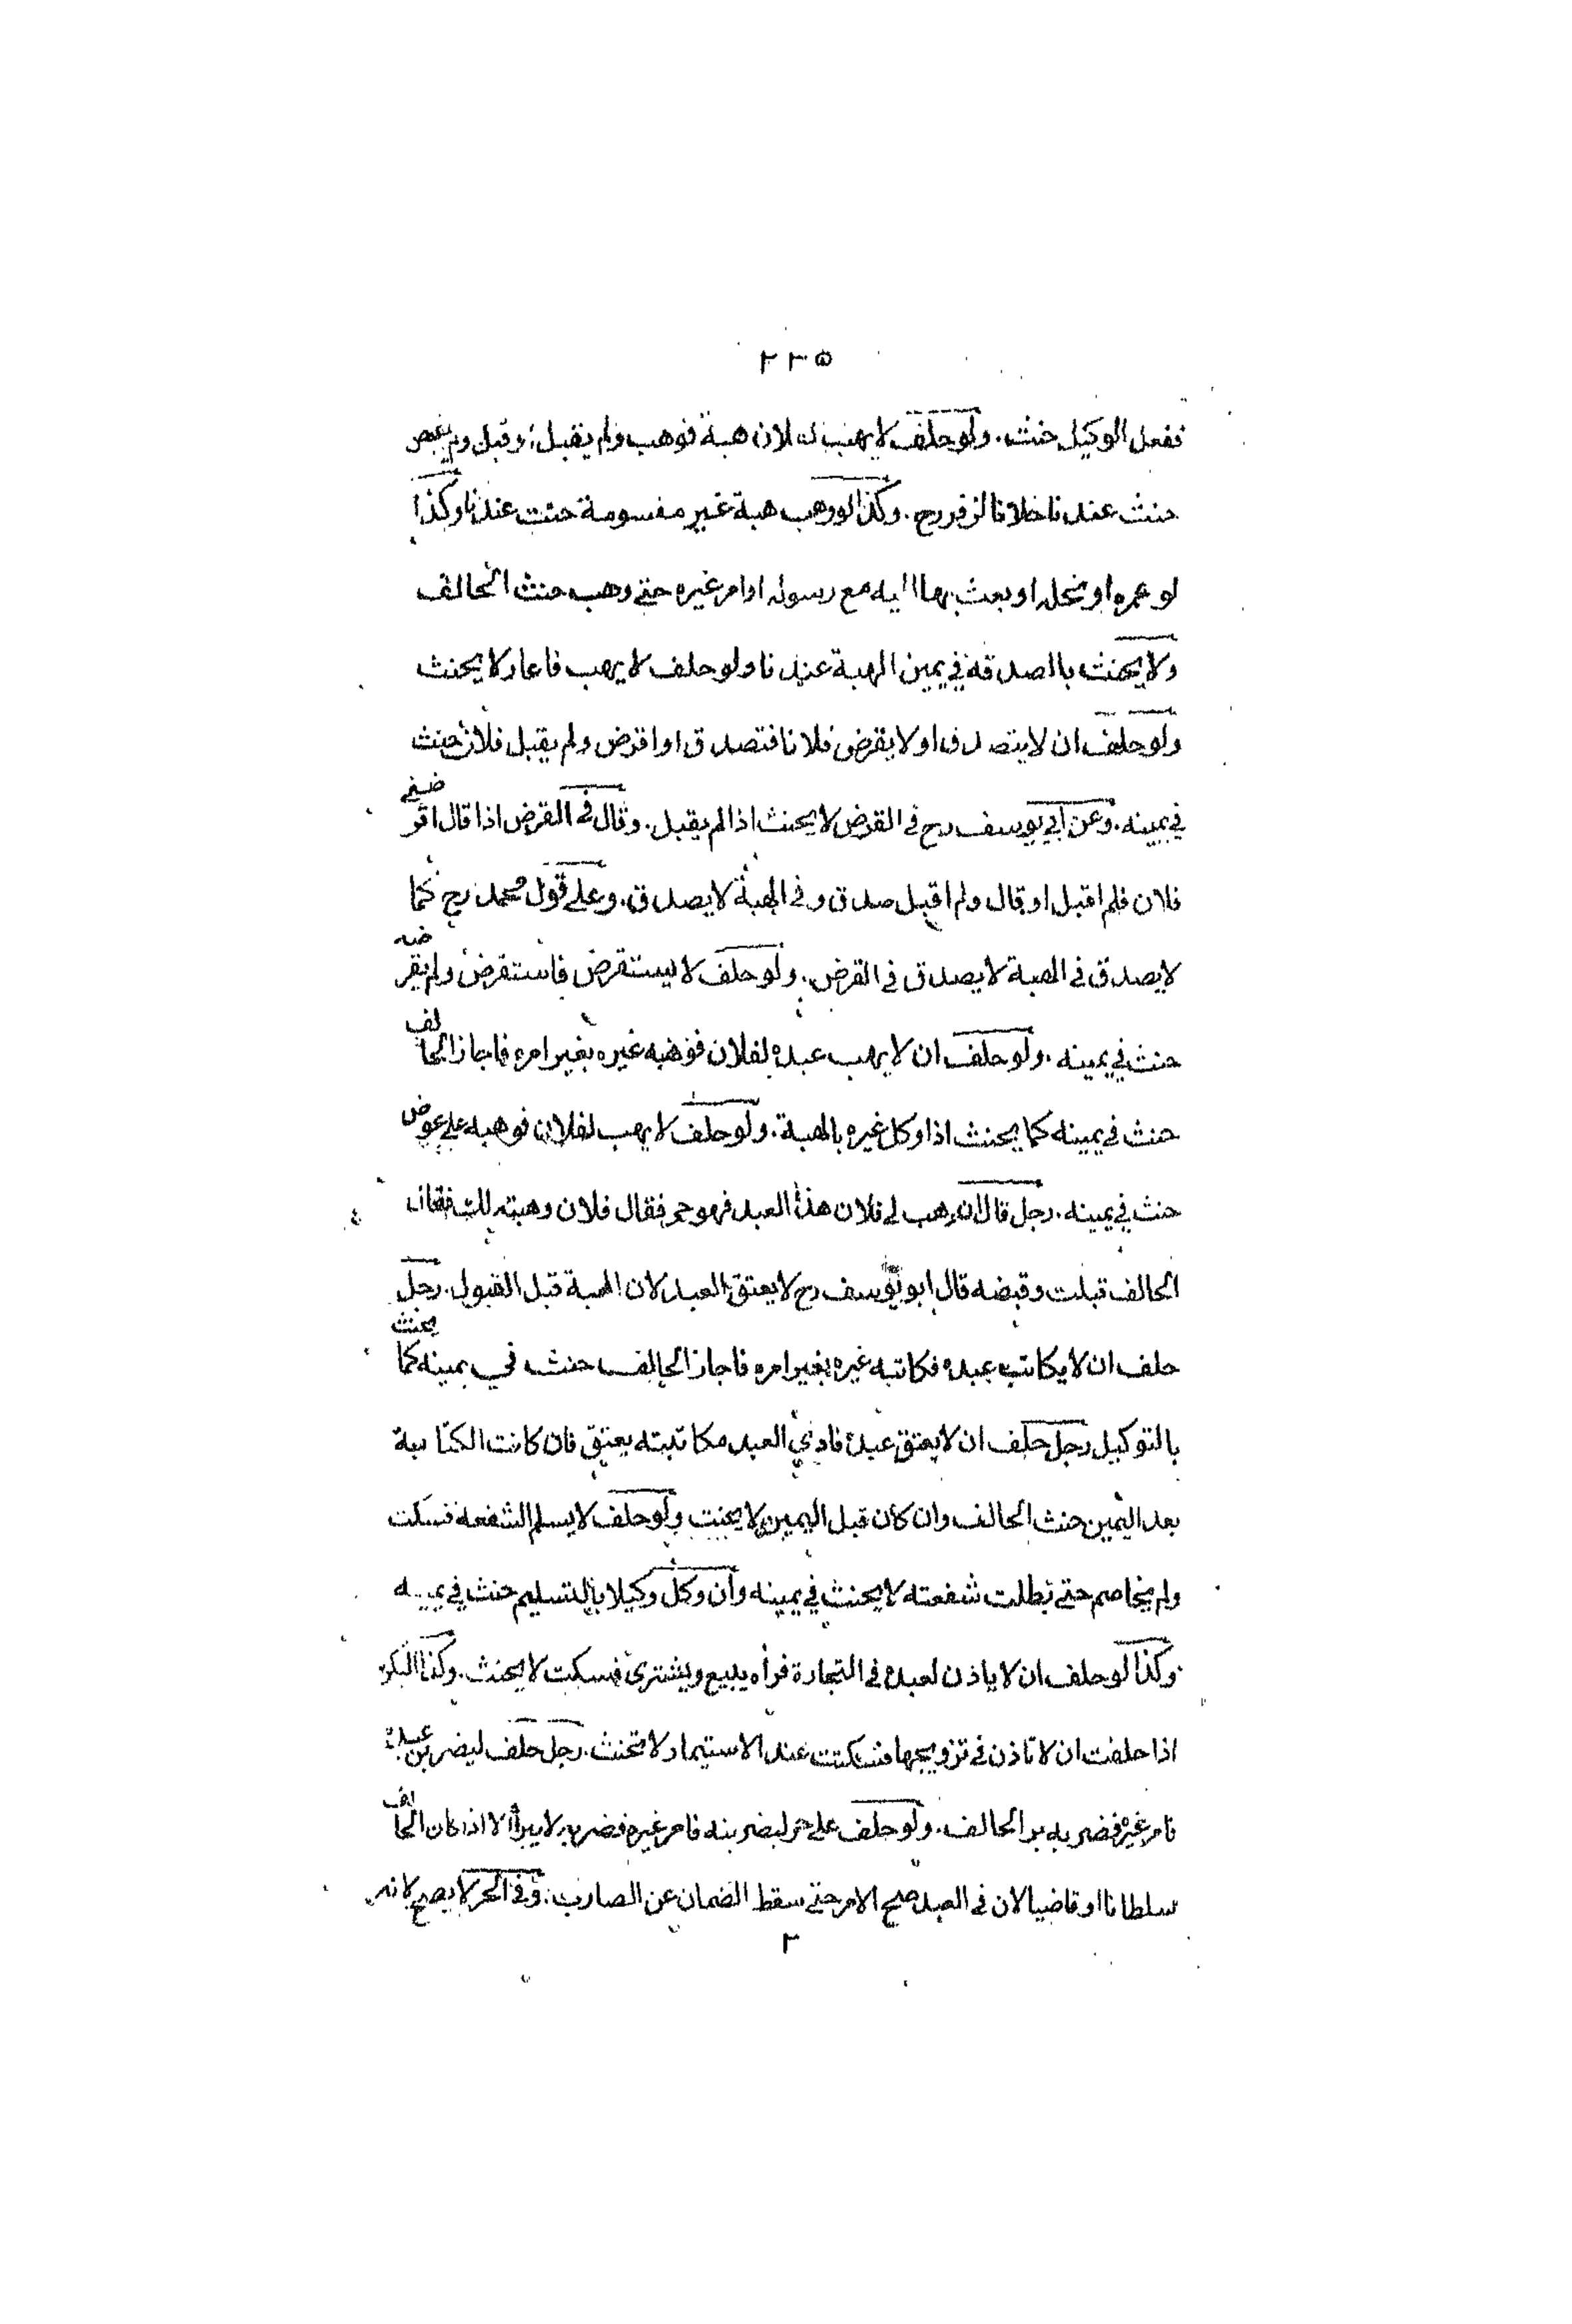 ٢٢٥
ففعل الوكيل حنث . ولو حلف لا يهب لفلان هبة فوهب ولم يقبل او قبل ولم يقبض
حنث عندنا خلافا لزفر رح . وكذا لو وهب هبة غير مقسومة حنث عندنا وكذا
لو عمره او نحله او بعث بها اليه مع رسوله او امر غيره حتى وهب حنث الحالف
ولا يحنث بالصدقة في يمين الهبة عندنا ولو حلف لا يهب فاعار لا يحنث
ولو حلف ان لا يتصدق او لا يقرض فلانا فتصدق او اقرض ولم يقبل فلان حنث
في يمينه . وعن ابي يوسف رح في القرض لا يحنث اذا لم يقبل . وقال في القرض اذا قال اقرضني
فلان فلم اقبل او قال ولم اقبل صدق وفي الهبة لا يصدق . وعلى قول محمد رح كما
لا يصدق في الهبة لا يصدق في القرض . ولو حلف لا يستقرض فاستقرض ولم يقرضه
حنث في يمينه . ولو حلف ان لا يهب عبده لفلان فوهبه غيره بغير امره فاجاز الحالف
حنث في يمينه كما يحنث اذا وكل غيره بالهبة . ولو حلف لا يهب لفلان فوهبه على عوض
حنث في يمينه . رجل قال ان وهب لي فلان هذا العبد فهو حر فقال فلان وهبته لك فقال
الحالف قبلت وقبضه قال ابو يوسف رح لا يعتق العبد لان الهبة قبل القبول . رجل
حلف ان لا يكاتب عبده فكاتبه غيره بغير امره فاجاز الحالف حنث في يمينه كما يحنث
بالتوكيل رجل حلف ان لا يعتق عبده فادي العبد مكاتبته يعتق فان كانت الكتابة
بعد اليمين حنث الحالف وان كان قبل اليمين لا يحنث ولو حلف لا يسلم الشفعة فسكت
ولم يخاصم حتى بطلت شفعته لا يحنث في يمينه وان وكل وكيلا بالتسليم حنث في يمينه
وكذا لو حلف ان لا ياذن لعبده في التجارة فرأه يبيع ويشترى فسكت لا يحنث . وكذا البكر
اذا حلفت ان لا تاذن في تزويجها فسكتت عند الاستيمار لا تحنث . رجل حلف ليضربن عبده
فامر غيره فضربه بر الحالف . ولو حلف على حر ليضربنه فامر غيره فضربه لا يبرأ الا اذا كان الحالف
سلطانا او قاضيا لان في العبد صح الامر حتى سقط الضمان عن الضارب . وفي الحر لا يصح لانه
٢